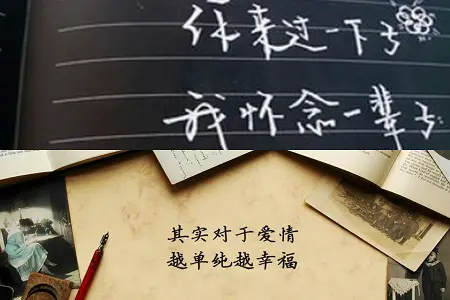 你来过一下子
我怀念一辈子
其实对于爱情
越单纯越幸福